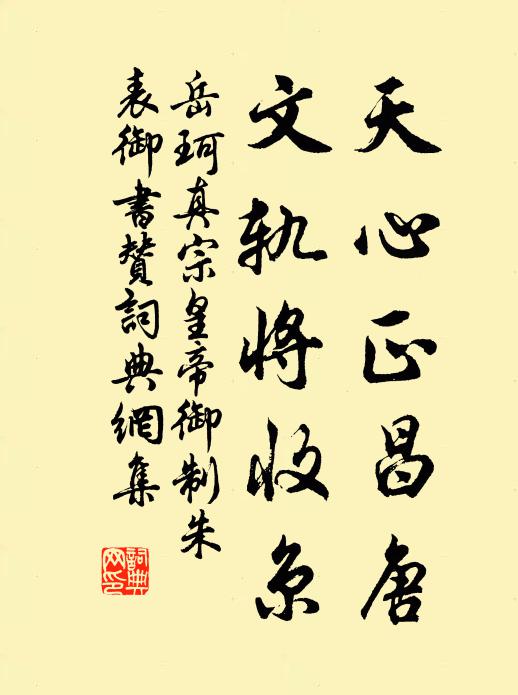 天心正昌唐
文軌將收京
岳珂真宗皇帝御制朱
表御書贊詞典網集
詞典網印